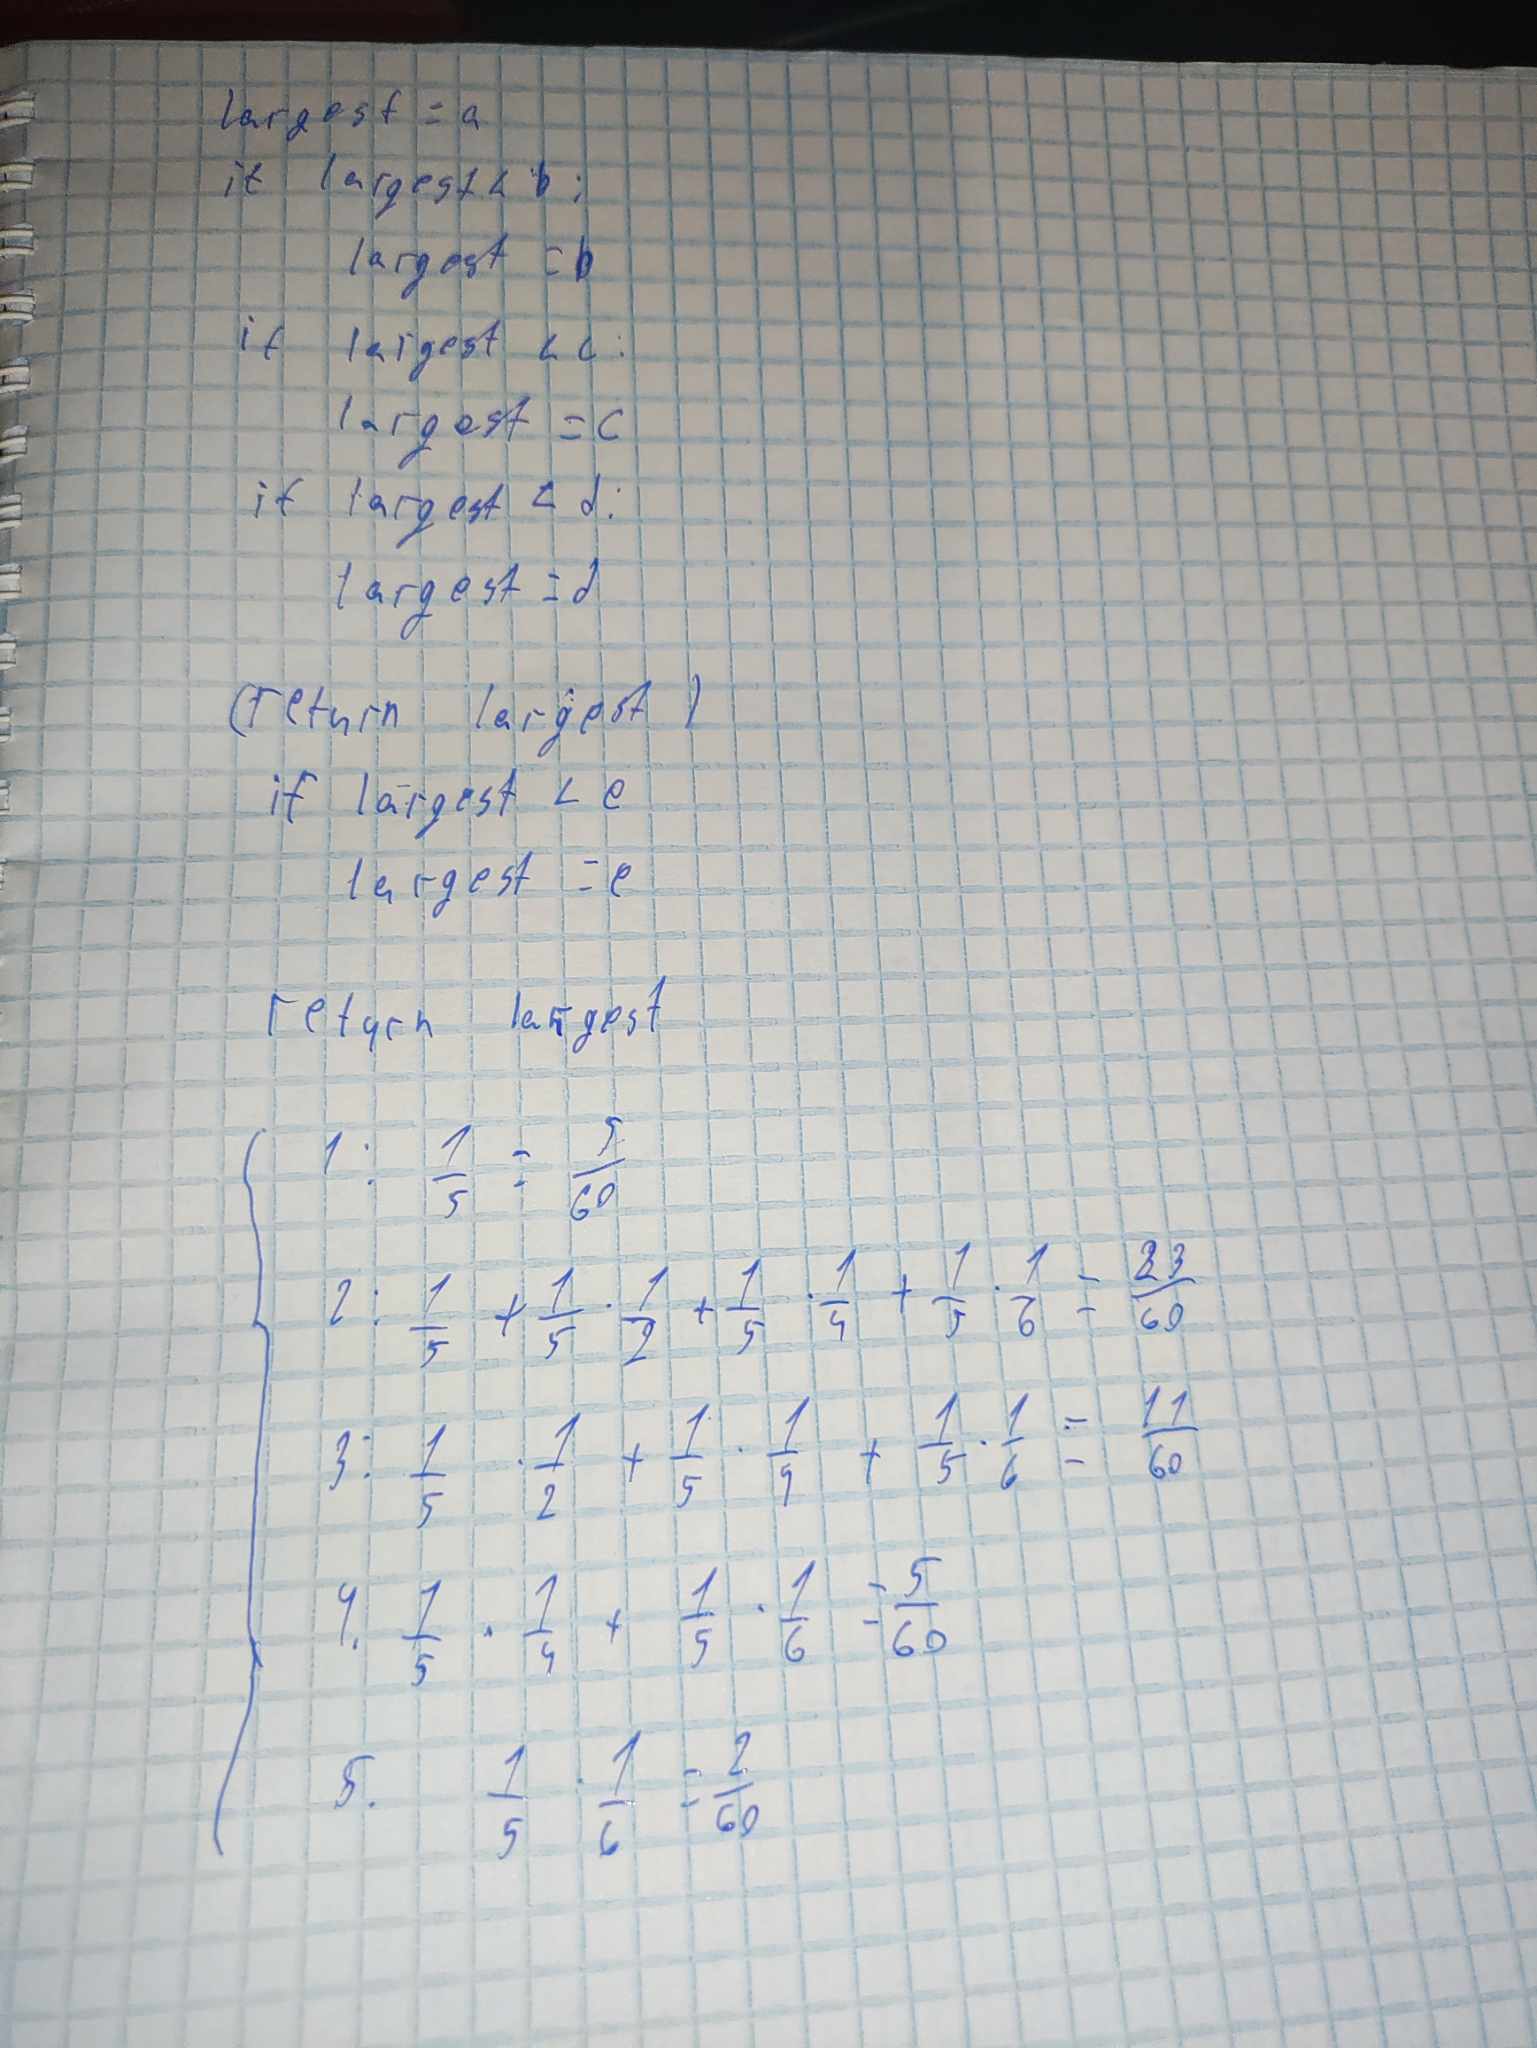 largest = a
if largest < b:
largest = b
if largest < c:
largest = c
if largest < d:
largest = d
(return largest)
if largest < e
largest = e
return largest
1: 1/5 = 5/60
2: 1/5 + 1/5 · 1/2 + 1/5 · 1/4 + 1/5 · 1/6 = 23/60
3: 1/5 · 1/2 + 1/5 · 1/4 + 1/5 · 1/6 = 11/60
4. 1/5 · 1/4 + 1/5 · 1/6 = 5/60
5. 1/5 · 1/6 = 2/60